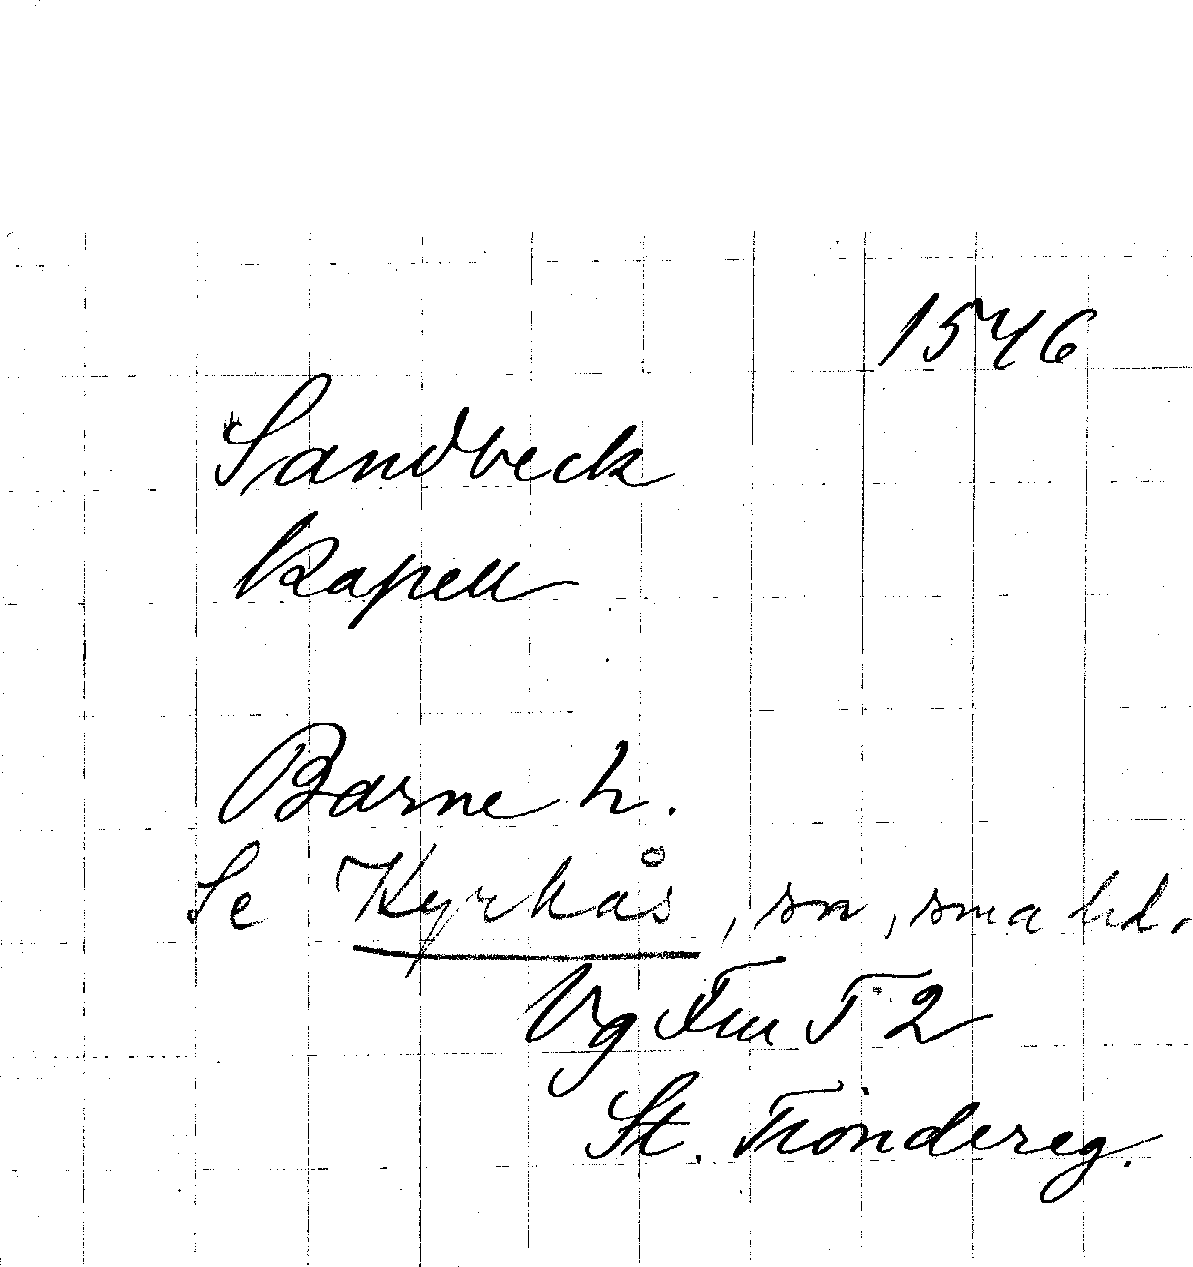 1546
Sandbeck
Kapell
Barne h.
Se Kyrkås, sn, sma hd.
Vg Fru T 2
St. Tiondereg.